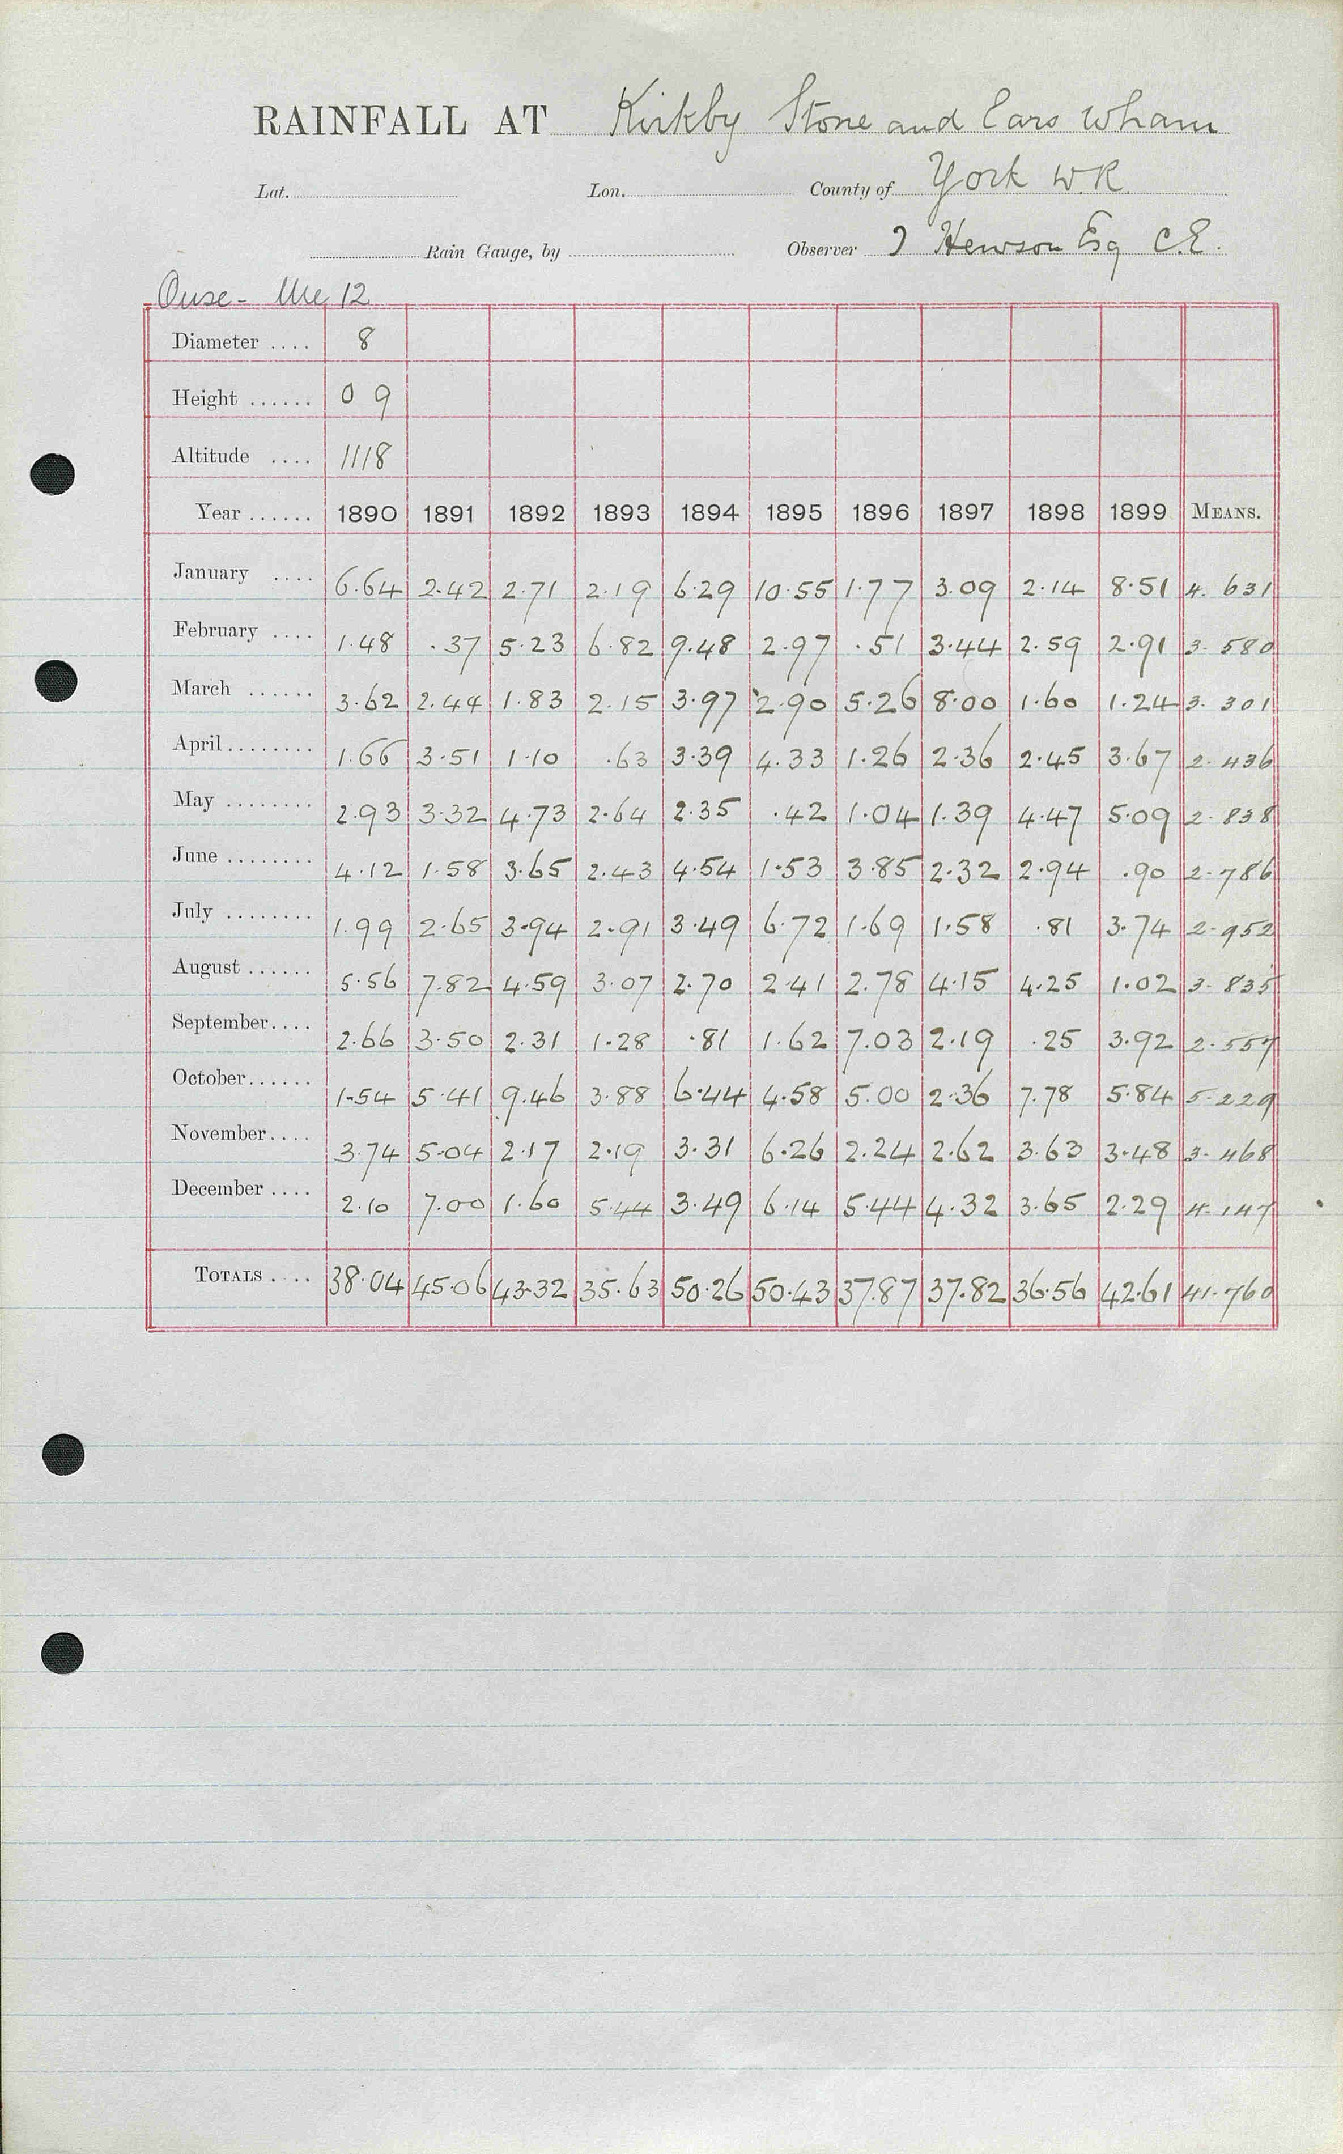 RAINFALL AT Kirkby Stone and Cars Wham
Lat. Lon. County of York W.R
Rain Gauge, by Observer J Hewson Esq C.E.
Ouse - Ure 12
Diameter .... 8
Height ...... 0 9
Altitude .... 1118
Year ...... 1890 1891 1892 1893 1894 1895 1896 1897 1898 1899 MEANS.
January .... 6.64 2.42 2.71 2.19 6.29 10.55 1.77 3.09 2.14 8.51 4.631
February .... 1.48 .37 5.23 6.82 9.48 2.97 .51 3.44 2.59 2.91 3.580
March ...... 3.62 2.44 1.83 2.15 3.97 2.90 5.26 8.00 1.60 1.24 3.301
April ........ 1.66 3.51 1.10 .63 3.39 4.33 1.26 2.36 2.45 3.67 2.436
May ........ 2.93 3.32 4.73 2.64 2.35 .42 1.04 1.39 4.47 5.09 2.838
June ........ 4.12 1.58 3.65 2.43 4.54 1.53 3.85 2.32 2.94 .90 2.786
July ........ 1.99 2.65 3.94 2.91 3.49 6.72 1.69 1.58 .81 3.74 2.952
August ...... 5.56 7.82 4.59 3.07 2.70 2.41 2.78 4.15 4.25 1.02 3.835
September .... 2.66 3.50 2.31 1.28 .81 1.62 7.03 2.19 .25 3.92 2.557
October ...... 1.54 5.41 9.46 3.88 6.44 4.58 5.00 2.36 7.78 5.84 5.229
November .... 3.74 5.04 2.17 2.19 3.31 6.26 2.24 2.62 3.63 3.48 3.468
December .... 2.10 7.00 1.60 5.44 3.49 6.14 5.44 4.32 3.65 2.29 4.147
TOTALS .... 38.04 45.06 43.32 35.63 50.26 50.43 37.87 37.82 36.56 42.61 41.760